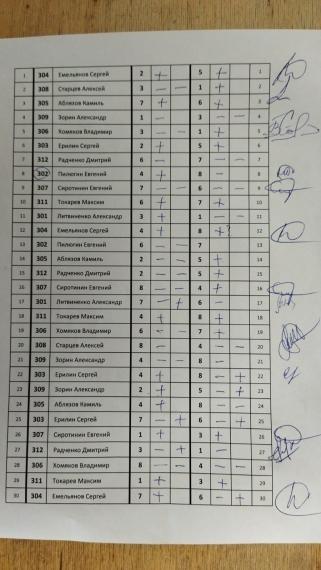 1 304 Емельянов Сергей 2 + 5 + 1
2 308 Старцев Алексей 3 — — 1 + 2
3 305 Аблязов Камиль 7 + 6 + 3
4 309 Зорин Александр 1 — 3 — — 4
5 306 Хомяков Владимир 3 — — 1 + 5
6 303 Ерилин Сергей 2 + 5 + 6
7 312 Радченко Дмитрий 6 — 7 — — 7
8 302 Пилюгин Евгений 4 + 8 — 8
9 307 Сиротинин Евгений 7 — — 6 — — 9
10 311 Токарев Максим 6 + 7 + 10
11 301 Литвиненко Александр 3 + 1 — — 11
12 304 Емельянов Сергей 4 + 8 +? 12
13 302 Пилюгин Евгений 6 — — 7 13
14 305 Аблязов Камиль 2 — — 5 + 14
15 312 Радченко Дмитрий 2 — — 5 + 15
16 307 Сиротинин Евгений 8 — — 4 + 16
17 301 Литвиненко Александр 7 — + 6 — 17
18 311 Токарев Максим 4 + 8 + 18
19 306 Хомяков Владимир 6 — — 7 + 19
20 308 Старцев Алексей 8 — 4 — — 20
21 309 Зорин Александр 4 — — 8 — 21
22 303 Ерилин Сергей 4 + 8 — + 22
23 309 Зорин Александр 2 + 5 — + 23
24 305 Аблязов Камиль 4 + 8 — — 24
25 303 Ерилин Сергей 7 — + 6 — + 25
26 307 Сиротинин Евгений 1 + 3 + 26
27 312 Радченко Дмитрий 3 — + 1 — 27
28 306 Хомяков Владимир 8 — — 4 — — 28
29 311 Токарев Максим 1 + 3 + 29
30 304 Емельянов Сергей 7 + 6 — + 30